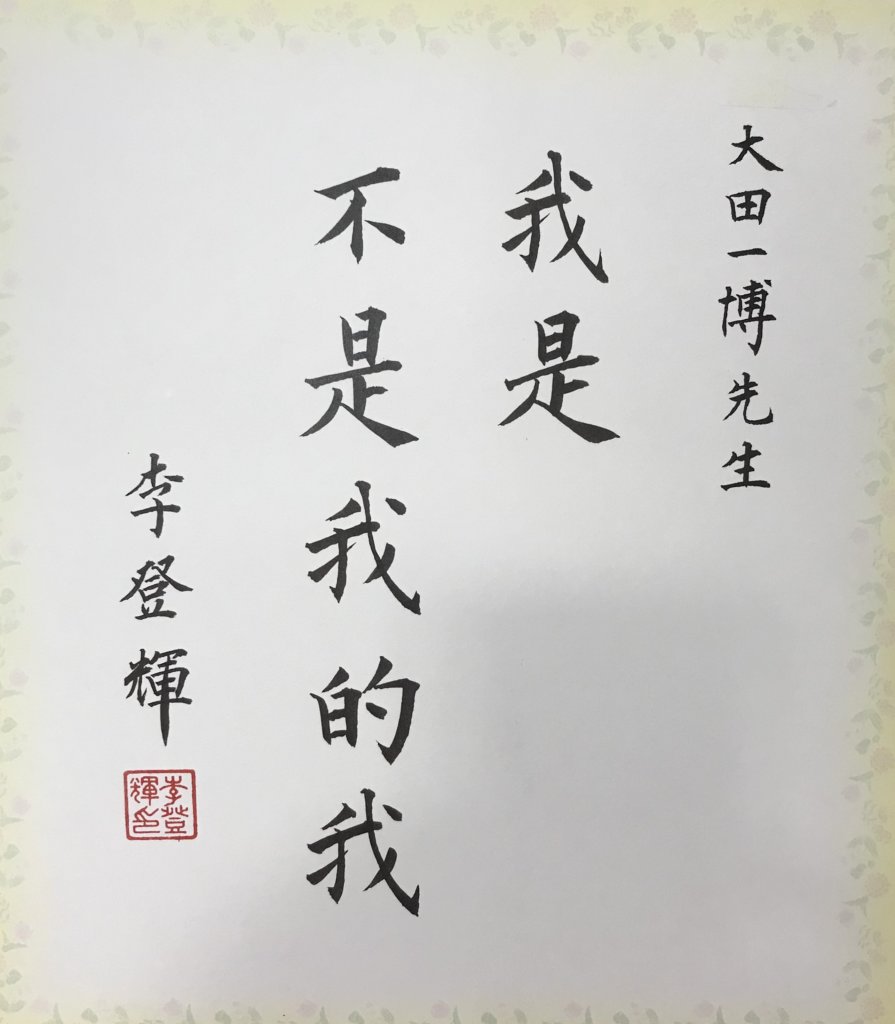 大田一博先生
我是
不是我的我
李登輝
李登輝印